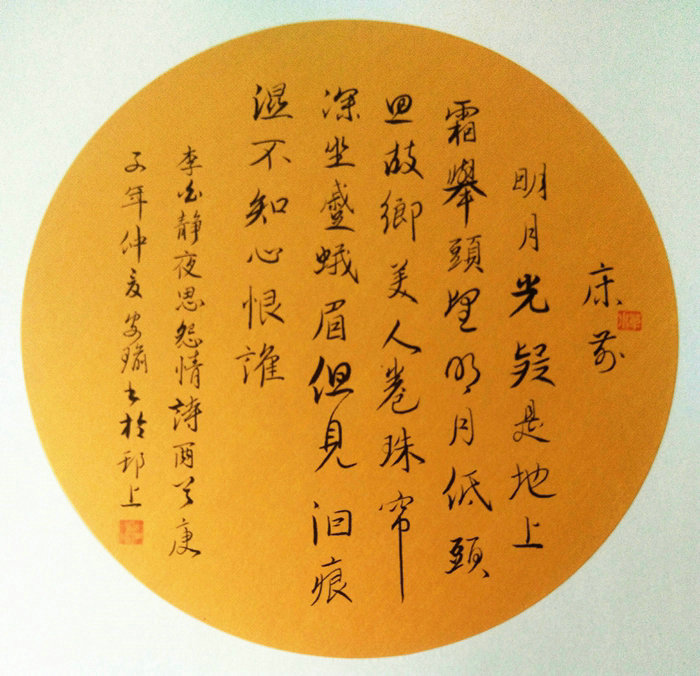 床前
明月光疑是地上
霜舉頭望明月低頭
思故鄉美人卷珠帘
深坐蹙蛾眉但見泪痕
濕不知心恨誰
李白静夜思怨情詩兩首庚
子年仲夏安瑜书於邗上